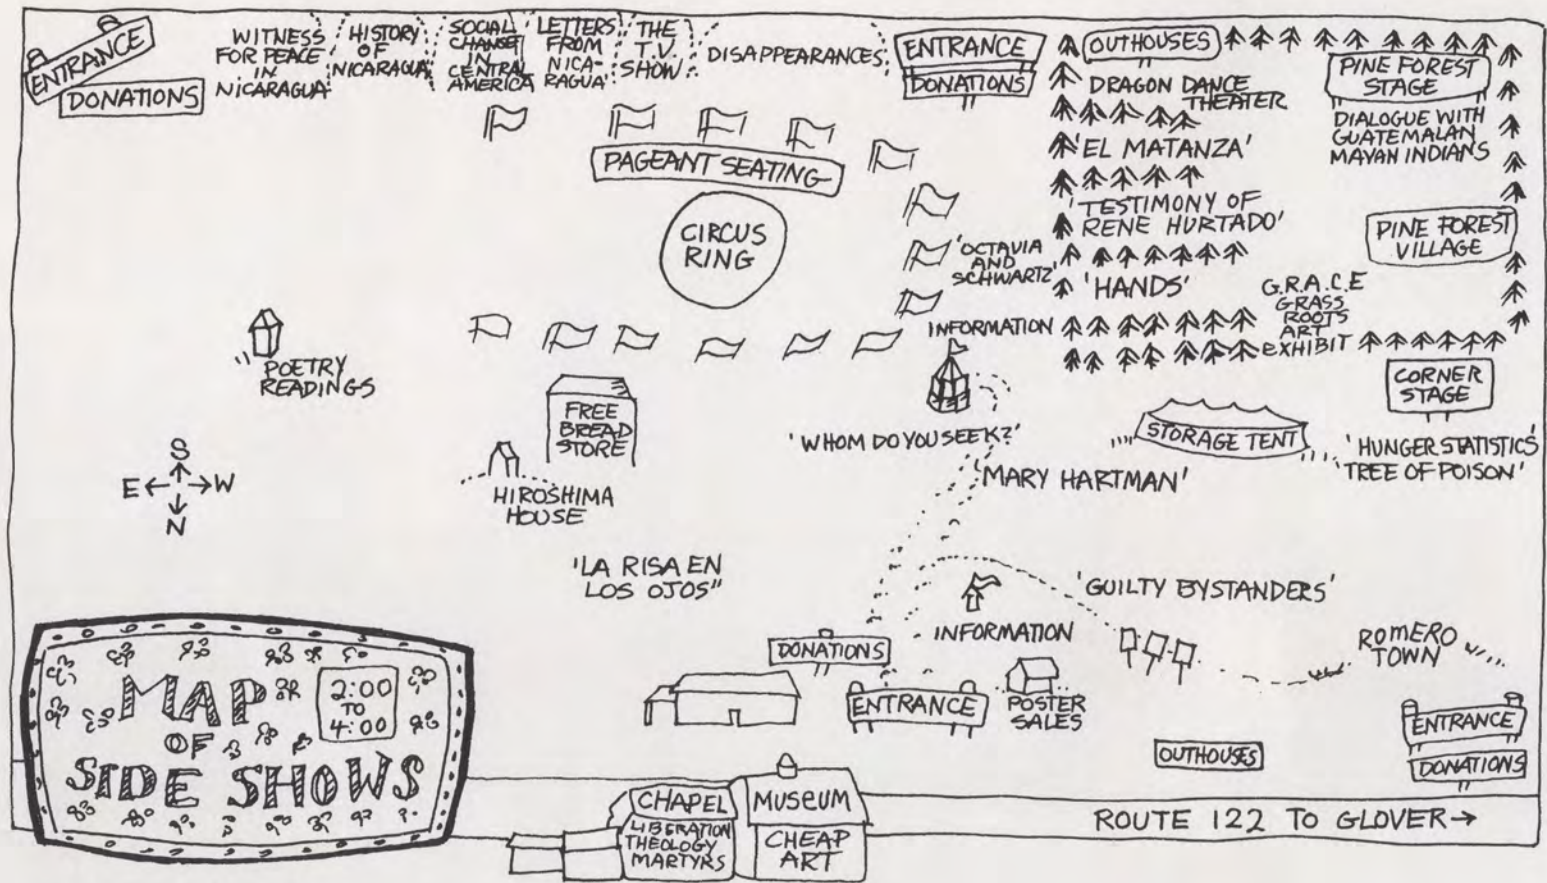 ENTRANCE
DONATIONS
WITNESS
FOR PEACE
IN
NICARAGUA
HISTORY
OF
NICARAGUA
SOCIAL
CHANGE
IN
CENTRAL
AMERICA
LETTERS
FROM
NICA-
RAGUA
THE
T.V.
SHOW
DISAPPEARANCES
ENTRANCE
DONATIONS
OUTHOUSES
DRAGON DANCE
THEATER
'EL MATANZA'
'TESTIMONY OF
RENE HURTADO'
'HANDS'
PINE FOREST
STAGE
DIALOGUE WITH
GUATEMALAN
MAYAN INDIANS
PINE FOREST
VILLAGE
G.R.A.C.E
GRASS
ROOTS
ART
EXHIBIT
PAGEANT SEATING
CIRCUS
RING
'OCTAVIA
AND
SCHWARTZ'
INFORMATION
POETRY
READINGS
FREE
BREAD
STORE
HIROSHIMA
HOUSE
'WHOM DO YOU SEEK?'
'MARY HARTMAN'
STORAGE TENT
CORNER
STAGE
'HUNGER STATISTICS'
'TREE OF POISON'
S
E W
N
'LA RISA EN
LOS OJOS"
'GUILTY BYSTANDERS'
INFORMATION
DONATIONS
ENTRANCE
POSTER
SALES
ROMERO
TOWN
OUTHOUSES
ENTRANCE
DONATIONS
MAP
OF
SIDE SHOWS
2:00
TO
4:00
CHAPEL
LIBERATION
THEOLOGY
MARTYRS
MUSEUM
CHEAP
ART
ROUTE 122 TO GLOVER→